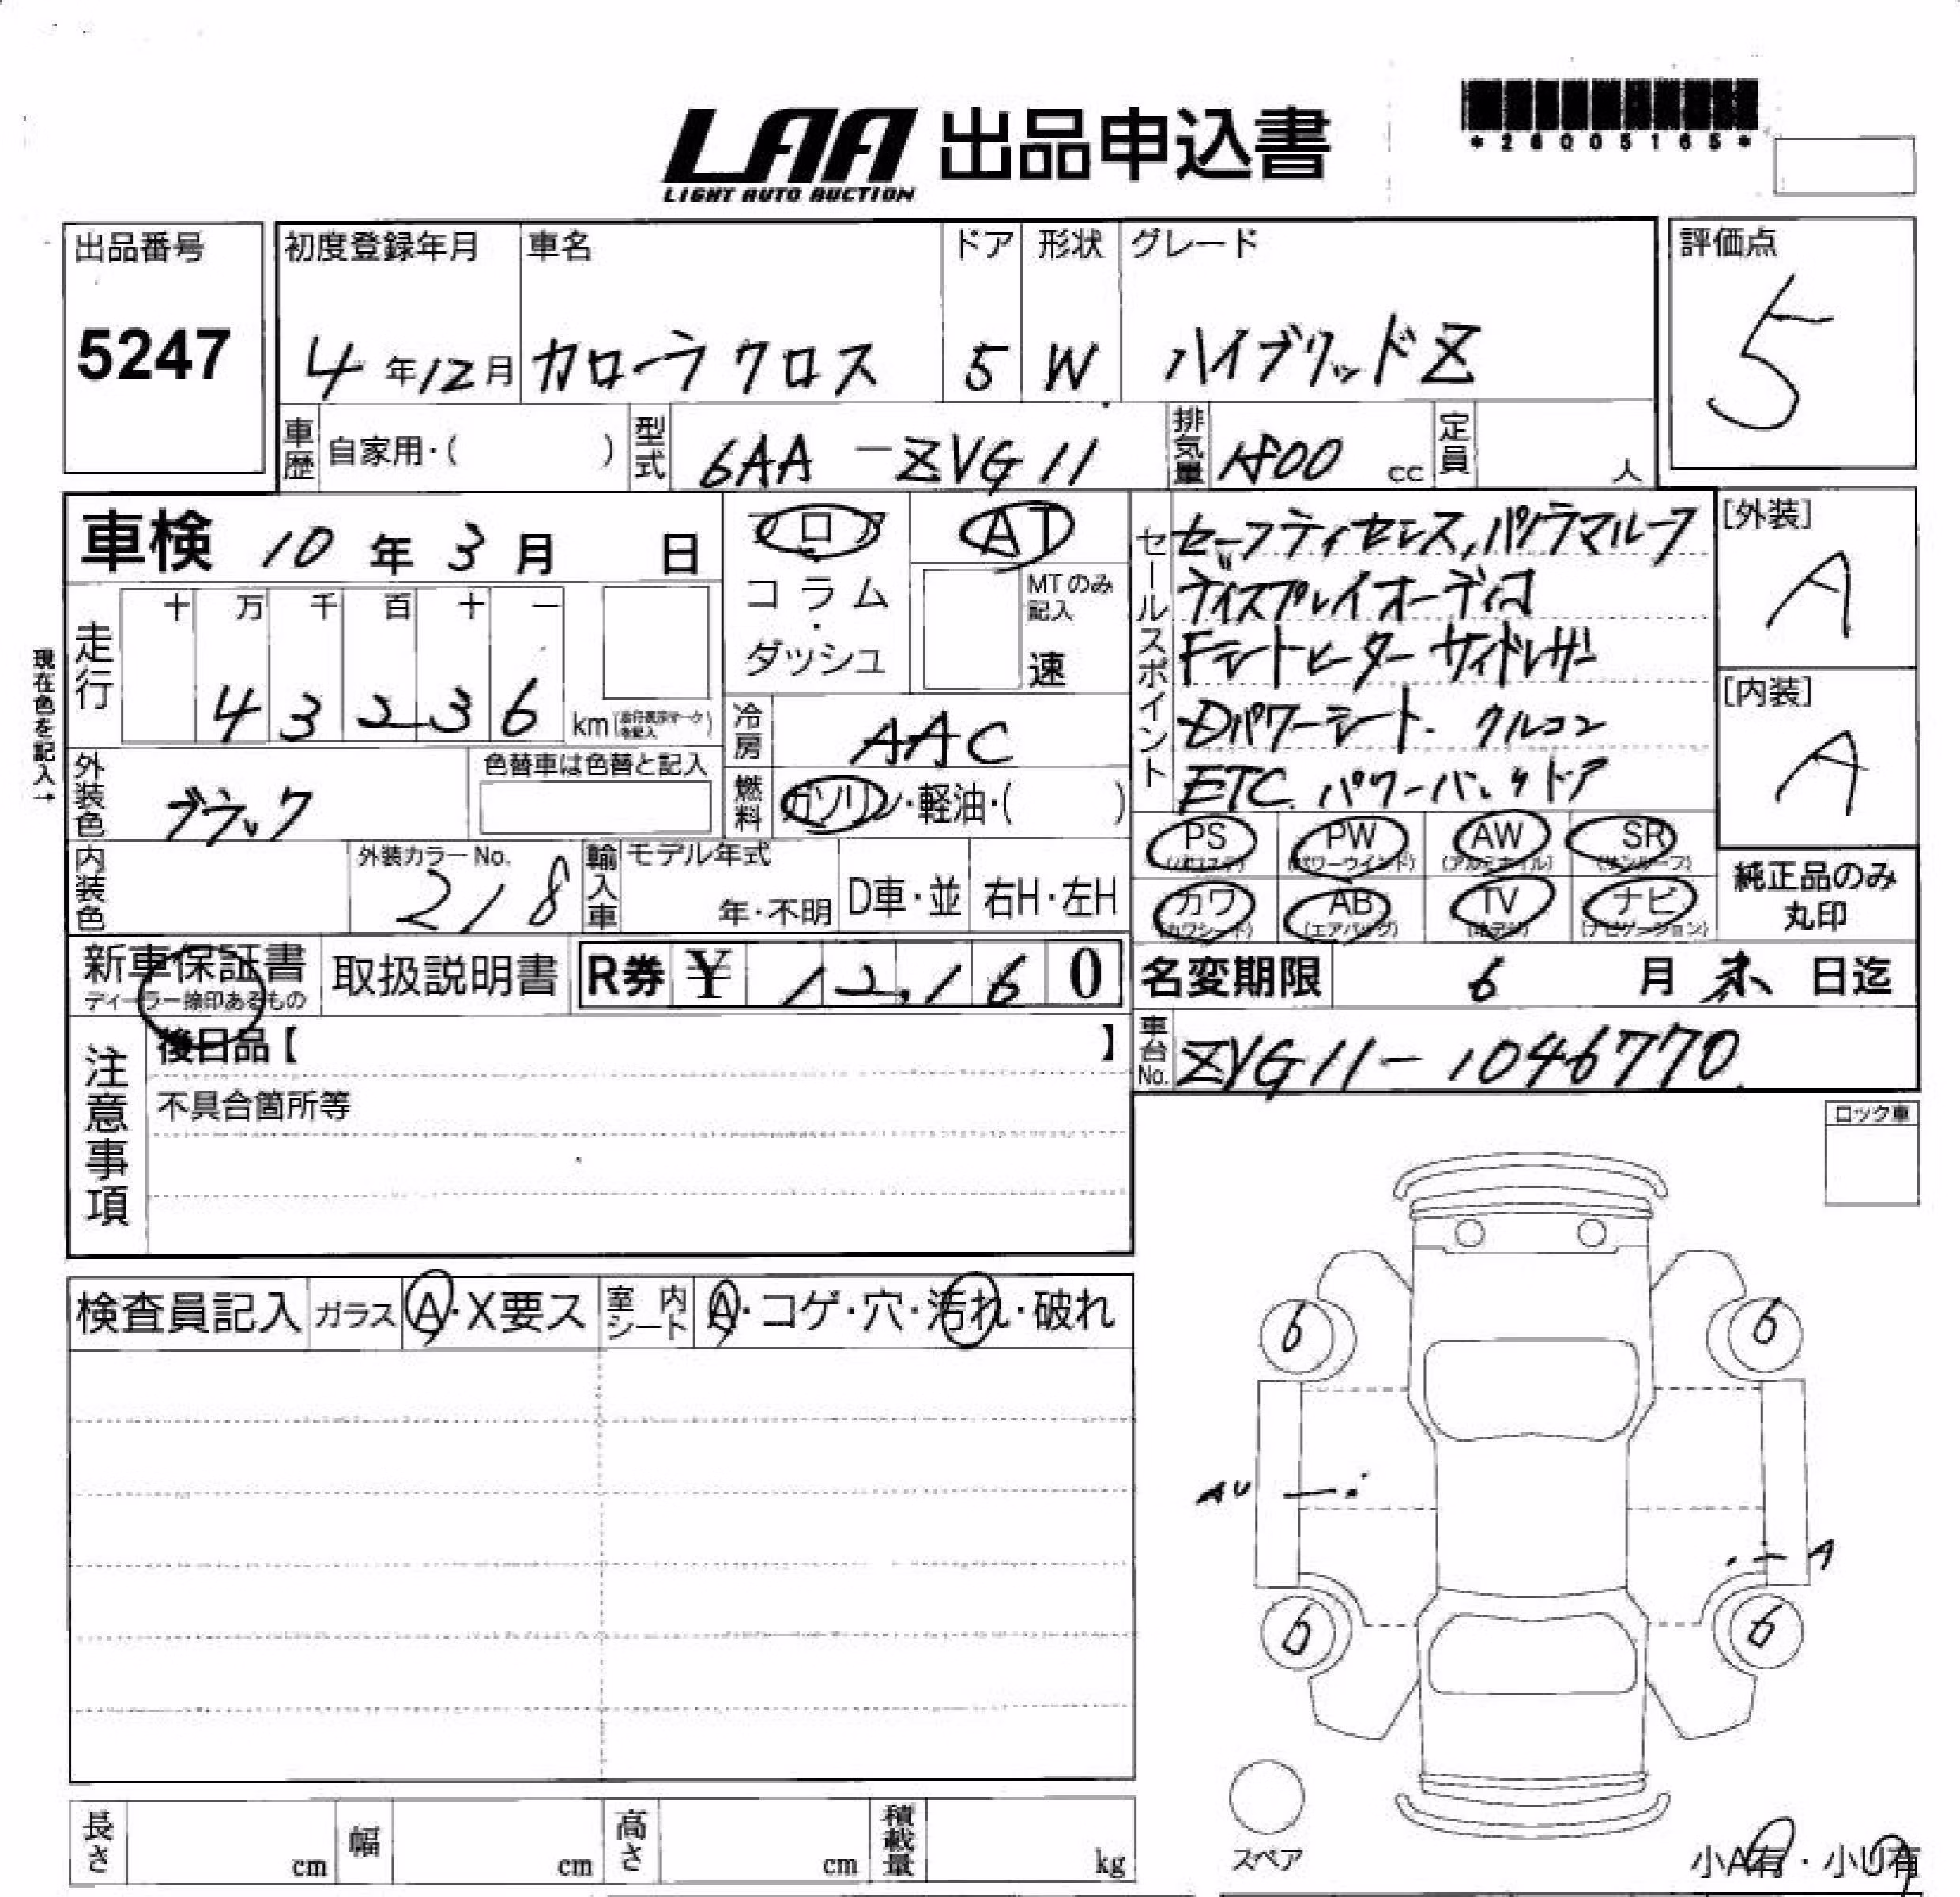 LAA 出品申込書
LIGHT AUTO AUCTION
*26005165*
出品番号 初度登録年月 車名 ドア 形状 グレード 評価点
5247 4年12月 カローラクロス 5 W ハイブリッドZ 5
車歴 自家用・( ) 型式 6AA-ZVG11 排気量 1800 cc 定員 人
車検 10年3月 日 フロア AT
コラム
ダッシュ
MTのみ記入
速
セールスポイント
セーフティセンス,パノラマルーフ
ディスプレイオーディオ
Fシートヒーター サイドレザー
Dパワーシート. クルコン
ETC. パワーバックドア
[外装] A
[内装] A
現在色を記入→
走行 十 万 千 百 十 一
43236 km (走行表示マークを記入)
冷房 AAC
外装色 ブラック 色替車は色替と記入
燃料 ガソリン・軽油・( )
内装色 外装カラーNo. 218 輸入車 モデル年式 年・不明 D車・並 右H・左H
PS (パワステ) PW (パワーウインド) AW (アルミホイル) SR (サンルーフ)
カワ (カワシート) AB (エアバッグ) TV (地デジ) ナビ (ナビゲーション)
純正品のみ
丸印
新車保証書 取扱説明書 R券 ¥ 12,160
ディーラー捺印あるもの
名変期限 6月末日迄
注意事項
後日品【 】
不具合箇所等
車台No. ZVG11-1046770
ロック車
検査員記入 ガラス A・X要ス 室内シート A・コゲ・穴・汚れ・破れ
6 6
AU
A
6 6
スペア
小A有・小U有
長さ cm 幅 cm 高さ cm 積載量 kg